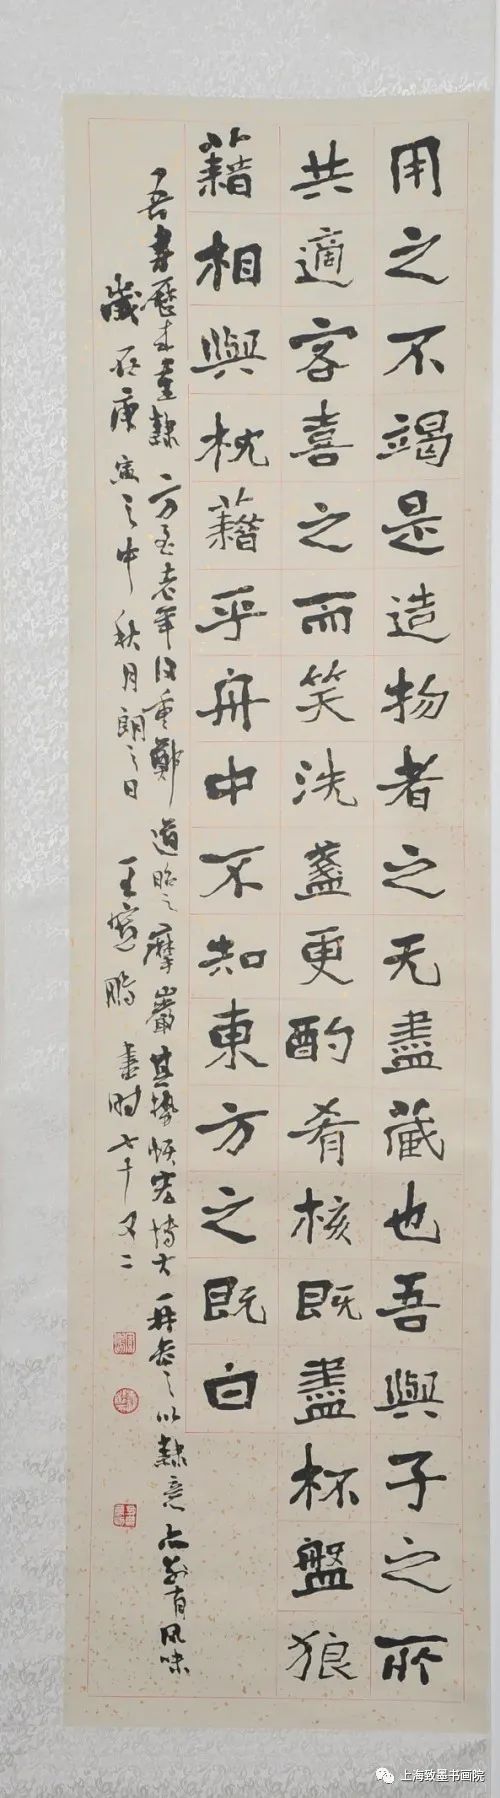 用之不竭是造物者之无盡藏也吾與子之所
共適客喜之而笑洗盞更酌肴核既盡杯盤狼
藉相與枕藉乎舟中不知東方之既白
吾書歷来重隸方至老年重鄭道昭之摩巖其勢恢宏博大再参之以隸意亦别有风味
歲在庚寅之中秋月朗之日王鹏書时七十又二
上海致墨书画院